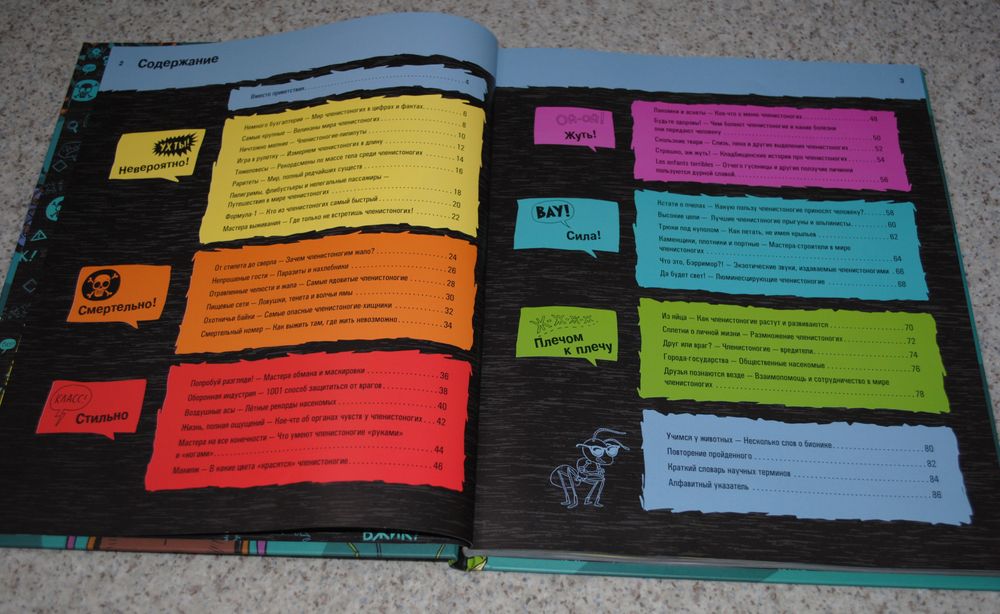 2
Содержание
Вместо приветствия 4
УХТЫ!
Невероятно!
Немного бухгалтерии — Мир членистоногих в цифрах и фактах 6
Самые крупные — Великаны мира членистоногих 8
Ничтожно мелкие — Членистоногие-лилипуты 10
Игра в рулетку — Измеряем членистоногих в длину 12
Тяжеловесы — Рекордсмены по массе тела среди членистоногих 14
Раритеты — Мир, полный редчайших существ 16
Пилигримы, флибустьеры и нелегальные пассажиры —
Путешествия в мире членистоногих 18
Формула-1 — Кто из членистоногих самый быстрый 20
Мастера выживания — Где только не встретишь членистоногих! 22
Смертельно!
От стилета до сверла — Зачем членистоногим жало? 24
Непрошеные гости — Паразиты и нахлебники 26
Отравленные челюсти и жала — Самые ядовитые членистоногие 28
Пищевые сети — Ловушки, тенета и волчьи ямы 30
Охотничьи байки — Самые опасные членистоногие-хищники 32
Смертельный номер — Как выжить там, где жить невозможно 34
КЛАСС!
Стильно
Попробуй разгляди! — Мастера обмана и маскировки 36
Оборонная индустрия — 1001 способ защититься от врагов 38
Воздушные асы — Лётные рекорды насекомых 40
Жизнь, полная ощущений — Кое-что об органах чувств у членистоногих 42
Мастера на все конечности — Что умеют членистоногие «руками»
и «ногами» 44
Макияж — В какие цвета «красятся» членистоногие 46
ВЖИК!
3
ОЙ-ОЙ!
Жуть!
Лакомки и аскеты — Кое-что о меню членистоногих 48
Будьте здоровы! — Чем болеют членистоногие и какие болезни
они передают человеку 50
Скользкие твари — Слизь, пена и другие выделения членистоногих 52
Страшно, аж жуть! — Кладбищенские истории про членистоногих 54
Les enfants terribles — Отчего гусеницы и другие ползучие личинки
пользуются дурной славой 56
ВАУ!
Сила!
Кстати о пчелах — Какую пользу членистоногие приносят человеку? 58
Высокие цели — Лучшие членистоногие прыгуны и альпинисты 60
Трюки под куполом — Как летать, не имея крыльев 62
Каменщики, плотники и портные — Мастера-строители в мире
членистоногих 64
Что это, Бэрримор?! — Экзотические звуки, издаваемые членистоногими 66
Да будет свет! — Люминесцирующие членистоногие 68
Плечом
к плечу
Из яйца — Как членистоногие растут и развиваются 70
Сплетни о личной жизни — Размножение членистоногих 72
Друг или враг? — Членистоногие — вредители 74
Города-государства — Общественные насекомые 76
Друзья познаются везде — Взаимопомощь и сотрудничество в мире
членистоногих 78
Учимся у животных — Несколько слов о бионике 80
Повторение пройденного 82
Краткий словарь научных терминов 84
Алфавитный указатель 86